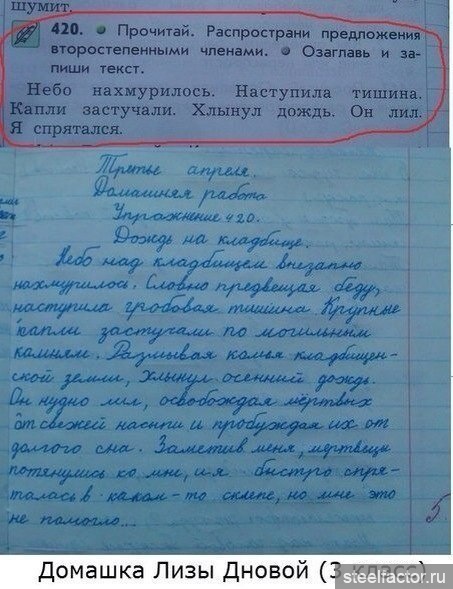 шумит.
420. • Прочитай. Распространи предложения
второстепенными членами. • Озаглавь и за-
пиши текст.
Небо нахмурилось. Наступила тишина.
Капли застучали. Хлынул дождь. Он лил.
Я спрятался.
Третье апреля.
Домашняя работа
Упражнение 420.
Дождь на кладбище.
Небо над кладбищем внезапно
нахмурилось. Словно предвещая беду,
наступила гробовая тишина. Крупные
капли застучали по могильным
камням. Размывая комья кладбищен-
ской земли, хлынул осенний дождь.
Он нудно лил, освобождая мёртвых
от свежей насыпи и пробуждая их от
долгого сна. Заметив меня, мертвецы
потянулись ко мне, и я быстро спря-
талась в каком-то склепе, но мне это
не помогло...
5
Домашка Лизы Дновой (3 класс)
steelfactor.ru